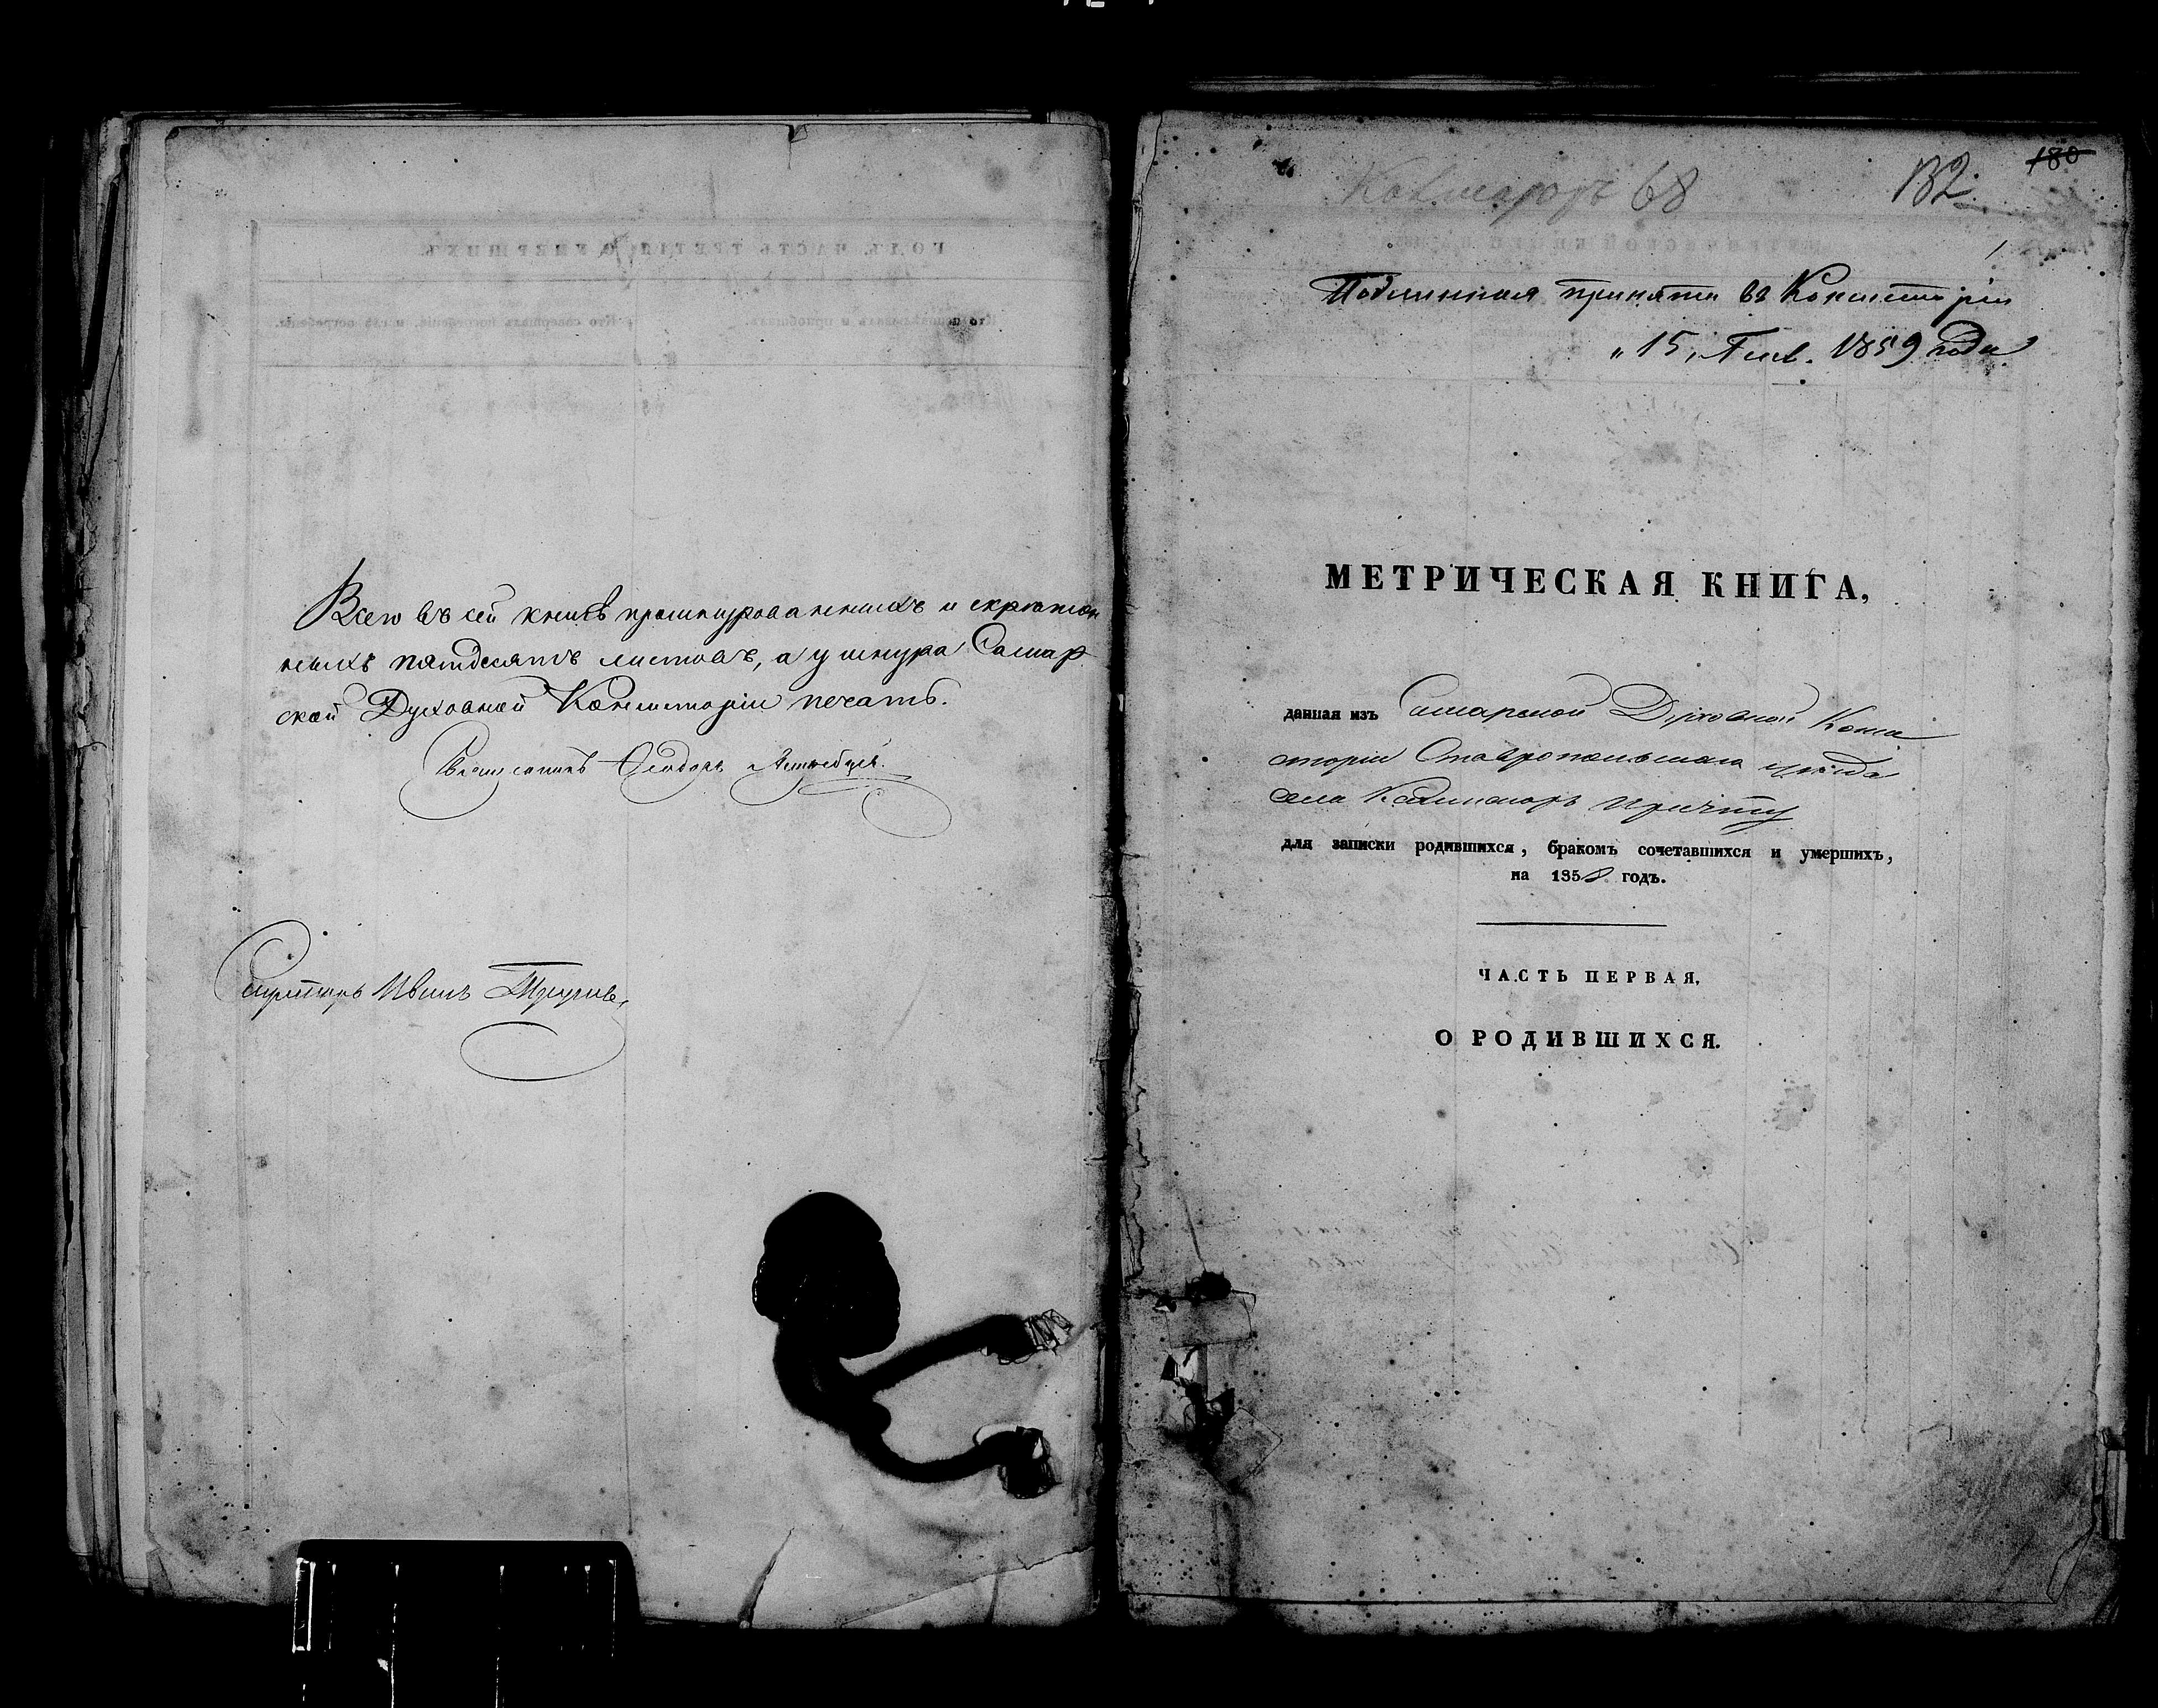 Всего въ сей книгѣ прошнурованныхъ и скрѣплен
ныхъ пятдесятъ листовъ, а у шнура Самар
ской Духовной Консисторіи печать.
Ѳеодоръ
Секретарь Иванъ
180
132
68
Подлинная принята въ Консисторіи
„15„ Генв. 1859 года
МЕТРИЧЕСКАЯ КНИГА,
данная изъ Самарской Духовной Конси
сторіи Ставропольскаго уѣзда
села причту
для записки родившихся, бракомъ сочетавшихся и умершихъ,
на 1858 годъ.
ЧАСТЬ ПЕРВАЯ.
О РОДИВШИХСЯ.